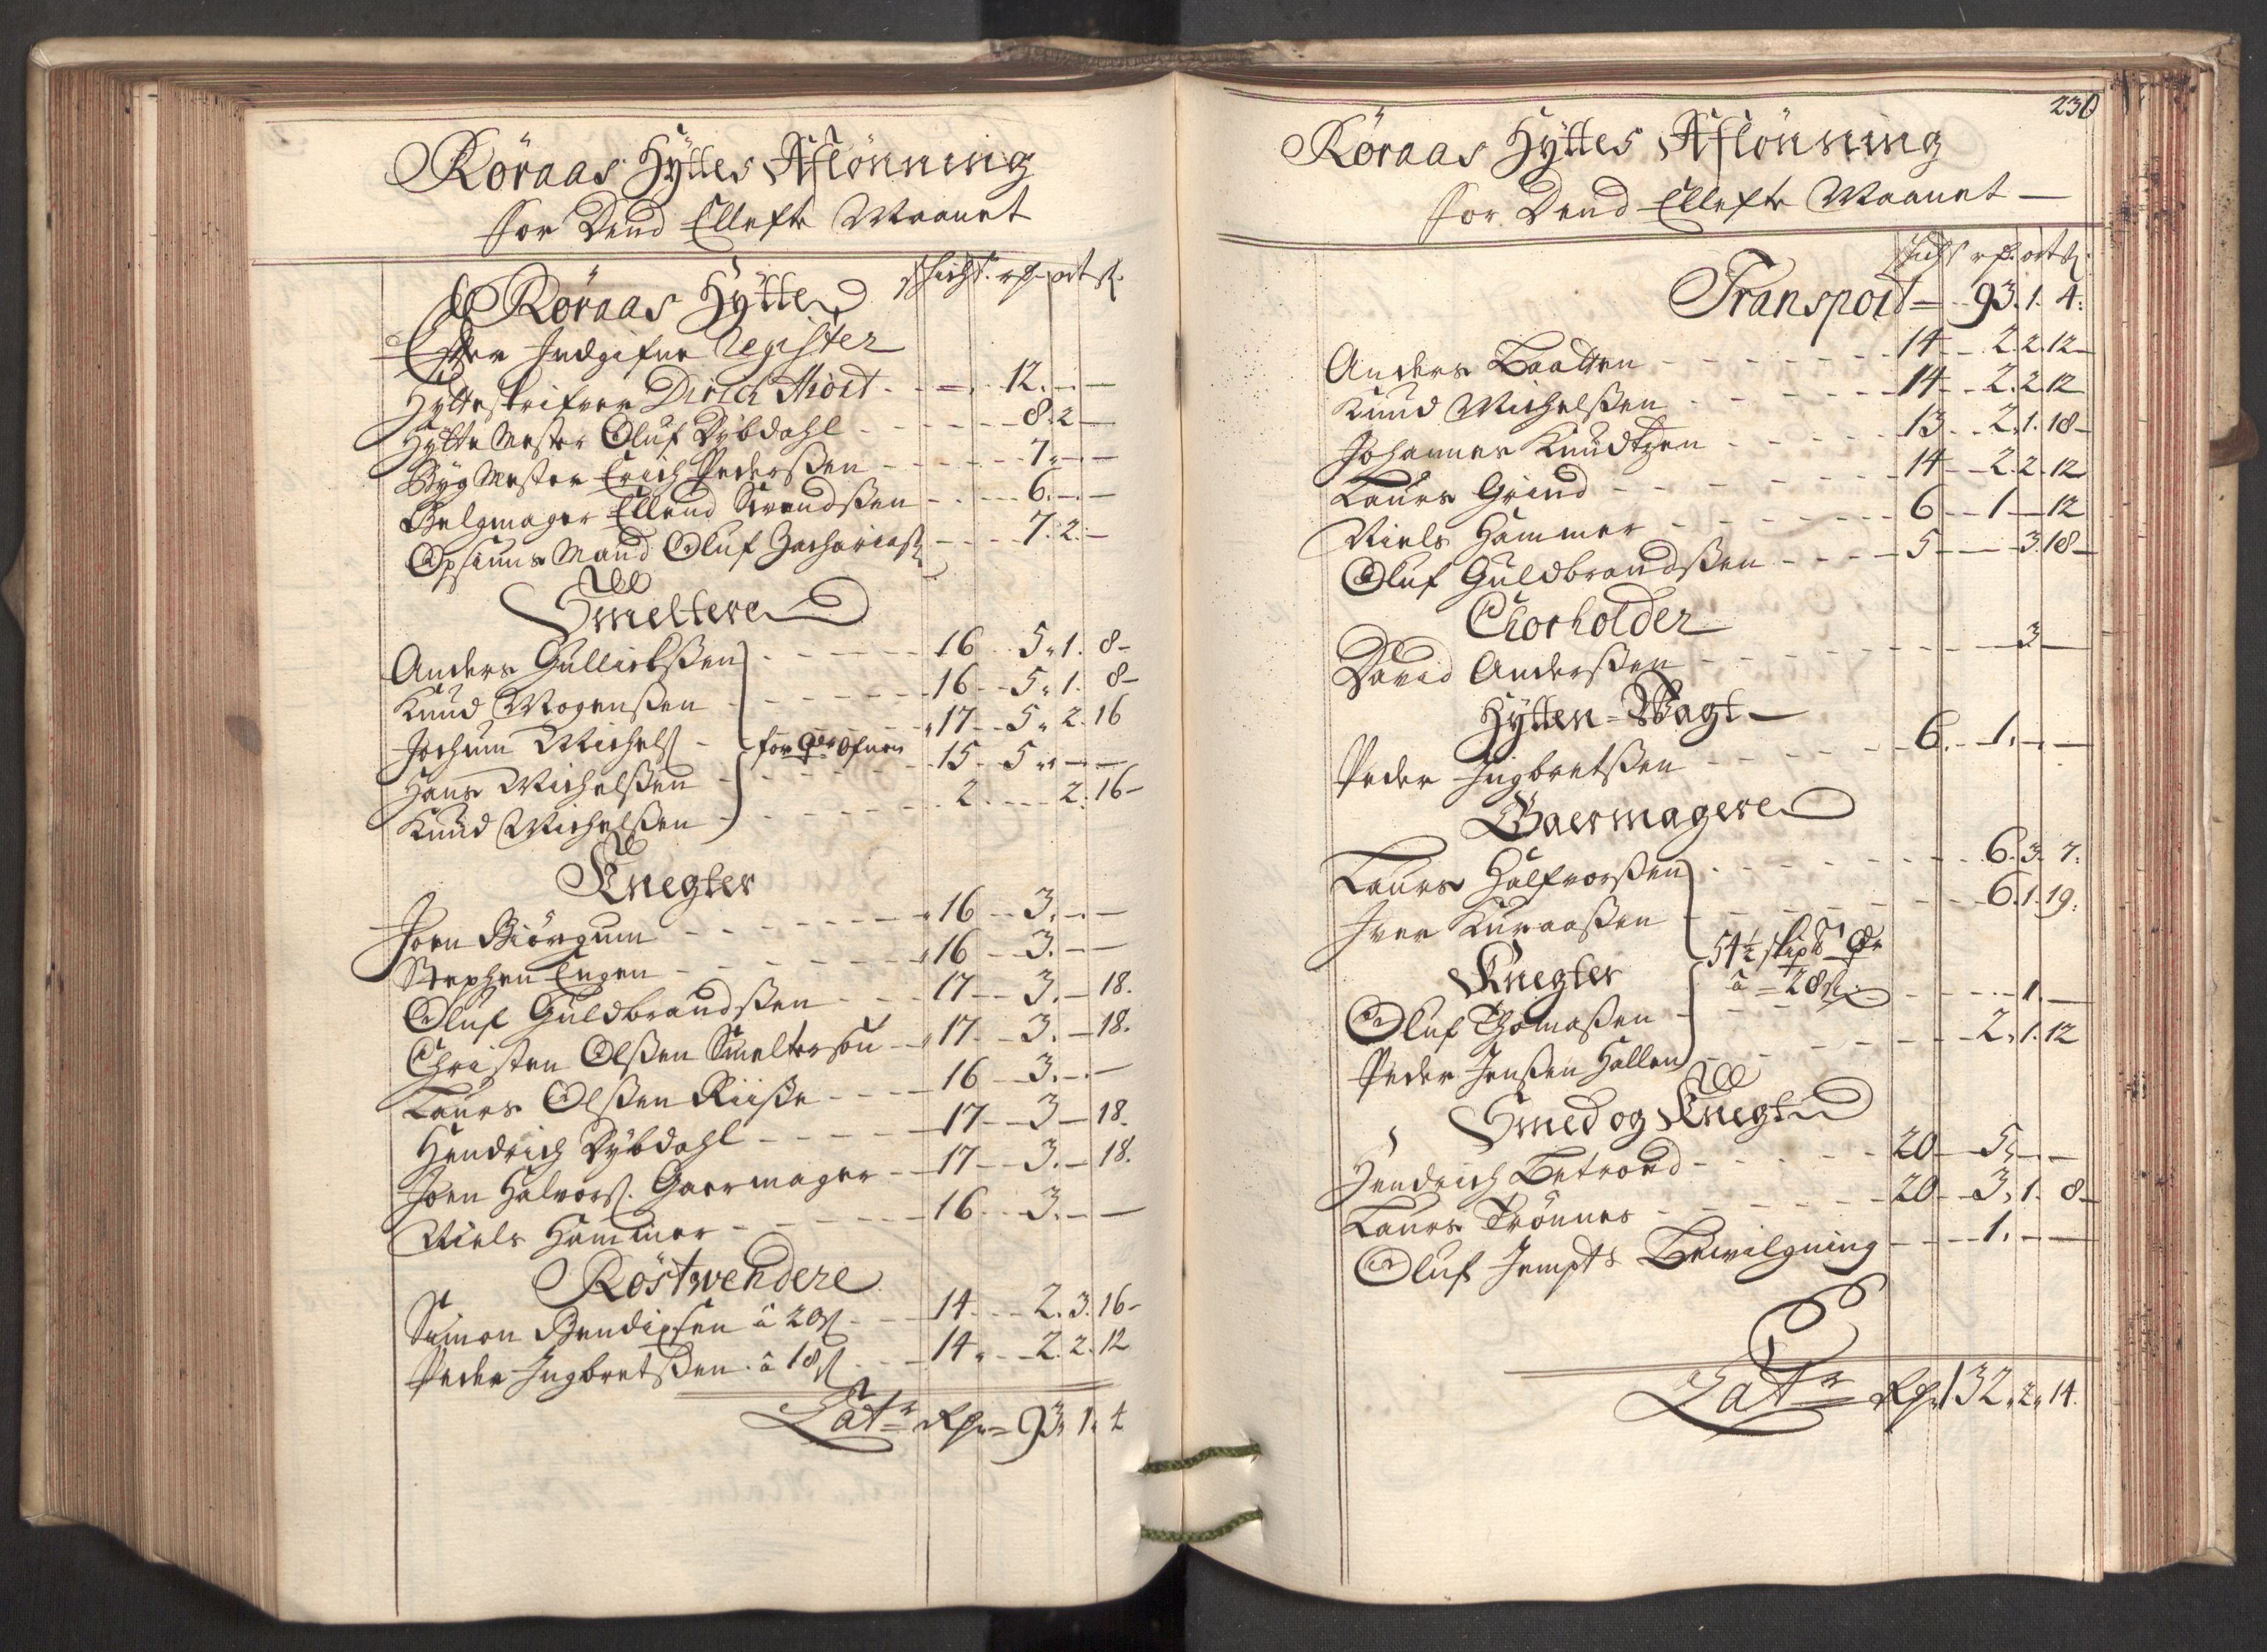 Röraas Hÿttes Aflönning
for Dend Ellefte Maanet
schicht. rd. ort s.
Röraas Hÿtte
Efter Indgifne Register
Hÿtteskrifver Dirich Thort - - - 12. - -
Hÿtte Mester Oluf Dÿbdahl - - - 8. 2 -
Bÿg Mester Erich Pederssen - - - 7. - -
Belgmager Ellend Svendssen - - - 6. - -
Opsiuns Mand Oluf Zachariass. - - - 7. 2. -
Smeltere
Anders Gullichssen - - - 16 - 5. 1. 8 -
Knud Mogenssen - - - 16 - 5. 1. 8 -
Jochum Michels. - for Ofnen - 17 - 5. 2. 16
Hans Michelssen - - - 15 - 5. - -
Knud Michelssen - - - 2 - - 2. 16 -
Knegter
Joen Biörgum - - - 16 - 3. - -
Stephen Engen - - - 16 - 3. - -
Oluf Guldbrandssen - - - 17 - 3. - 18.
Christen Olssen Smelterson - - 17 - 3. - 18.
Laurs Olssen Riisse - - - 16 - 3. - -
Hendrich Dÿbdahl - - - 17 - 3 - 18.
Joen Halvors. Gaermager - - 17 - 3. - 18.
Niels Hammer - - - 16 - 3. - -
Röstvendere
Simon Bendixsen â 20 s. - - 14 - 2. 3. 16 -
Peder Ingbretssen â 18 s. - - 14 - 2. 2. 12
Lat. Rd. = 93. 1. 4
230
Röraas Hÿttes Aflönning
for Dend Ellefte Maanet -
schicht rd. ort s.
Transport - 93. 1. 4.
Anders Baatten - - - 14 - 2. 2. 12 -
Knud Michelssen - - - 14 - 2. 2. 12
Johannes Knudtzen - - - 13 - 2. 1. 18 -
Laurs Grind - - - 14 - 2. 2. 12
Niels Hammer - - - 6 - 1 - 12
Oluf Guldbrandssen - - - 5 - - 3. 18 -
Chorholder
David Anderssen - - - 3 -
Hÿtten-Vagt -
Peder Ingbretssen - - - 6. - 1. - -
Gaermagere
Laurs Halfvorssen - - - 6. 3. 7.
Iver Kuraassen - - - 6. 1. 19.
54½ skip
Knegter â - 28 s.
Oluf Thomassen - - - 1. -
Peder Jenssen Hallen - - - 2. 1. 12
Smed og Knegt
Hendrich Betrand - - - 20 - 5. - -
Laurs Trönnes - - - 20 - 3. 1. 8 -
Oluf Jempts Bewilgning - - - 1. - -
Lat. Rd. 132. 2. 14.